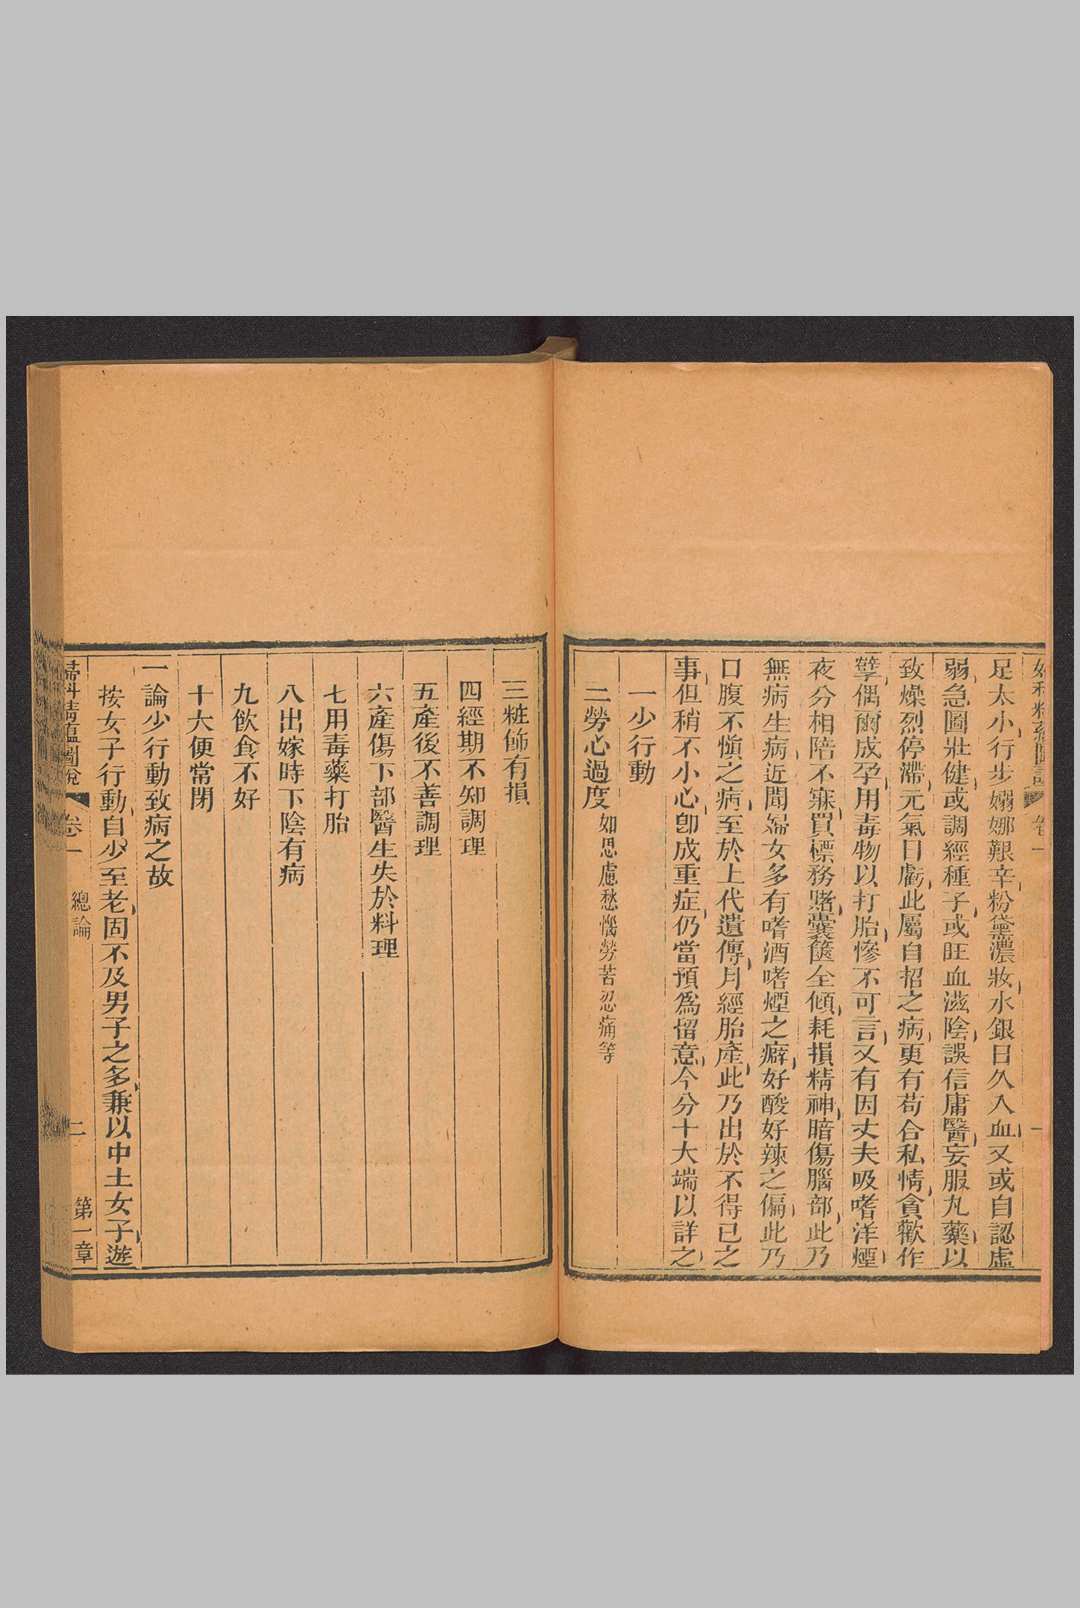 足太小行步嫋娜艱辛粉黛濃妝水銀日久入血又或自認虛
弱急圖壯健或調經種子或旺血滋陰誤信庸醫妄服丸藥以
致燥烈停滯元氣日虧此屬自招之病更有苟合私情貪歡作
孽偶爾成孕用毒物以打胎慘不可言又有因丈夫吸嗜洋煙
夜分相陪不寐買標務賭囊篋全傾耗損精神暗傷腦部此乃
無病生病近聞婦女多有嗜酒嗜煙之癖好酸好辣之偏此乃
口腹不愼之病至於上代遺傳月經胎產此乃出於不得已之
事但稍不小心卽成重症仍當預爲留意今分十大端以詳之
一少行動
二勞心過度如思慮愁惱勞苦忍痛等
三粧飾有損
四經期不知調理
五產後不善調理
六產傷下部醫生失於料理
七用毒藥打胎
八出嫁時下陰有病
九飲食不好
十大便常閉
一論少行動致病之故
按女子行動自少至老固不及男子之多兼以中土女子遊
婦科精蘊圖說 卷一 總論 二 第一章